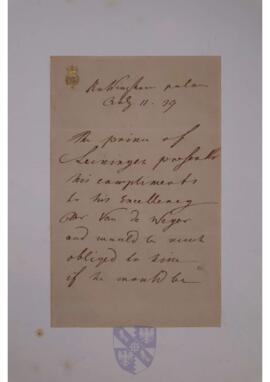 Buckingham palace
July 11. 39
The prince of
Leiningen presents
his compliments
to his Excellency
Mr Van de Weyer
and would be much
obliged to him
if he would be